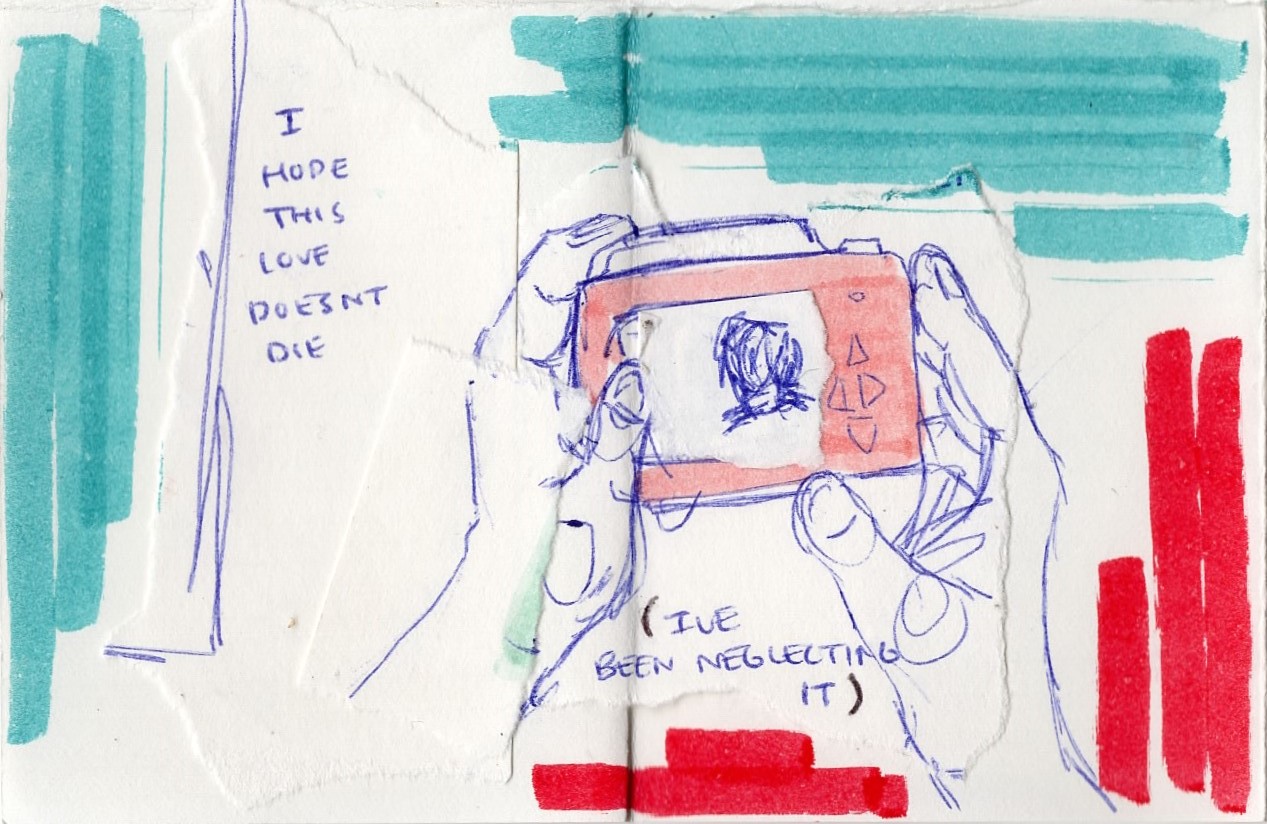 I
HOPE
THIS
LOVE
DOESNT
DIE
(IVE
BEEN NEGLECTING
IT)